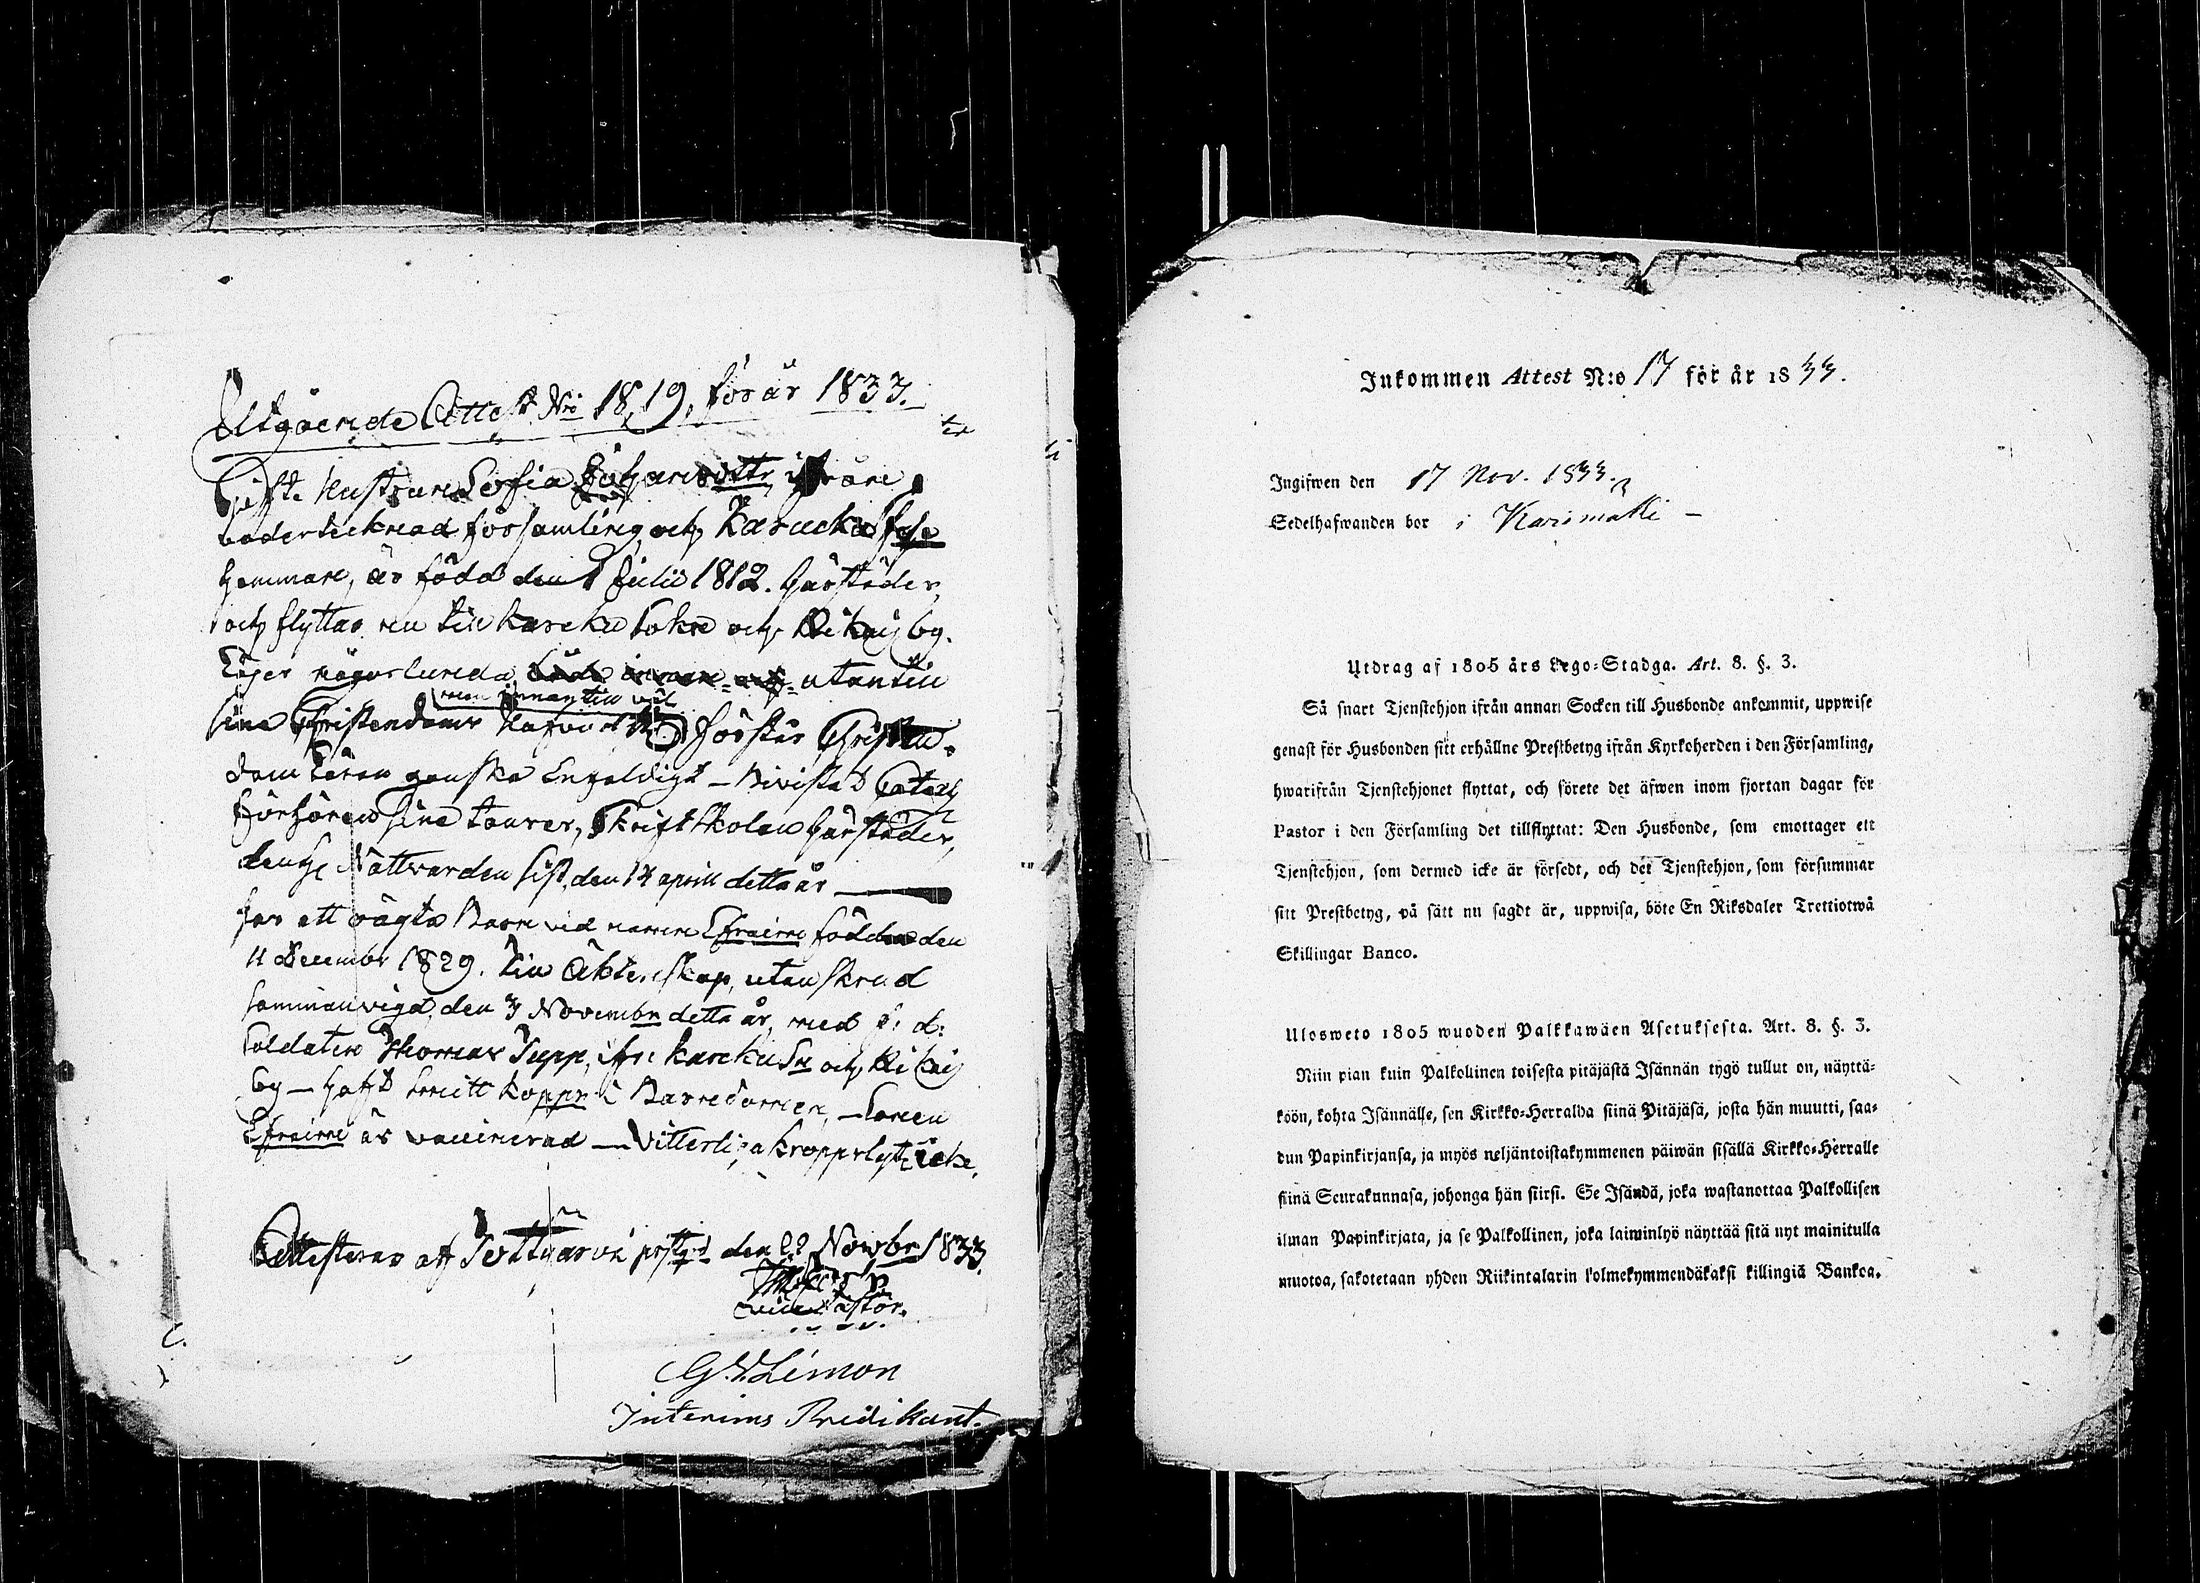 Utgående Attest No 18,19, för år 1833.
Gifte Hustrun Sofia Juhansdottr, ifrån
undertecknad församling och Karucka
hemman, är född den 1 Julii 1812. härstädes,
och flyttar nu till Karcku Sokn och by.
Eger någorlunda utantill
men innantill väl
sina Christendoms förstår Christen-
doms Läran ganska Enfaldigt – Bivistat Catech
förhören sine tourer, Skriftskolan härstädes,
den Hel Nattvarden sist, den 14 aprill detta år
har ett oägta Barn vid namn Efraim född den
11 Decembr 1829. till Äktenskap, utan skrud
sammanvigd, den 3 Novembr detta år, med
Soldaten Thomas Tupp, ifrn Karcku Sn och
by – haft Smitt koppr i Barndomen, – Sonen
Efraim är vaccinerad – Vitterliga kroppslyte icke,
Attesteras af den Novbr 1833.
vice Pastor.
G. V. Limon
Interims Predikant.
Inkommen Attest N:o 17 för år 1833.
Ingifwen den 17 Nov. 1833.
Sedelhafwanden bor i Karimäki –
Utdrag af 1805 års Lego-Stadga. Art. 8. §. 3.
Så snart Tjenstehjon ifrån annan Socken till Husbonde ankommit, uppwise
genast för Husbonden sitt erhållne Prestbetyg ifrån Kyrkoherden i den Församling,
hwarifrån Tjenstehjonet flyttat, och förete det äfwen inom fjortan dagar för
Pastor i den Församling det tillflyttat: Den Husbonde, som emottager ett
Tjenstehjon, som dermed icke är försedt, och det Tjenstehjon, som försummar
sitt Prestbetyg, på sätt nu sagdt är, uppwisa, böte En Riksdaler Trettiotwå
Skillingar Banco.
Ulosweto 1805 wuoden Palkkawäen Asetuksesta. Art. 8. §. 3.
Niin pian kuin Palkollinen toisesta pitäjästä Isännän tygö tullut on, näyttä-
köön, kohta Isännälle, sen Kirkko-Herralda siinä Pitäjäsä, josta hän muutti, saa-
dun Papinkirjansa, ja myös neljäntoistakymmenen päiwän sisällä Kirkko-Herralle
siinä Seurakunnasa, johonga hän siirsi. Se Isändä, joka wastanottaa Palkollisen
ilman Papinkirjata, ja se Palkollinen, joka laiminlyö näyttää sitä nyt mainitulla
muotoa, sakotetaan yhden Riikintalarin kolmekymmendäkaksi killingiä Bankoa.